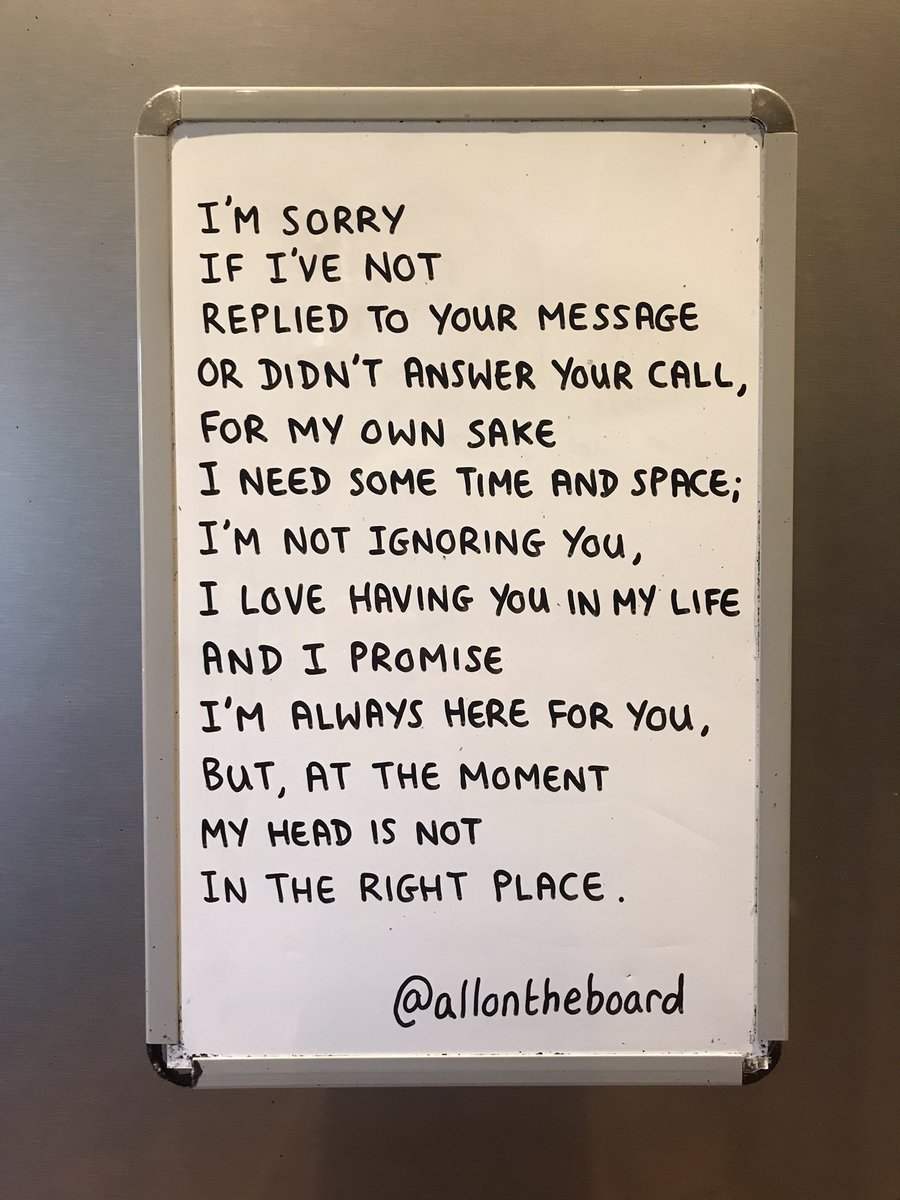 I'M SORRY
IF I'VE NOT
REPLIED TO YOUR MESSAGE
OR DIDN'T ANSWER YOUR CALL,
FOR MY OWN SAKE
I NEED SOME TIME AND SPACE;
I'M NOT IGNORING YOU,
I LOVE HAVING YOU IN MY LIFE
AND I PROMISE
I'M ALWAYS HERE FOR YOU,
BUT, AT THE MOMENT
MY HEAD IS NOT
IN THE RIGHT PLACE.
@allontheboard